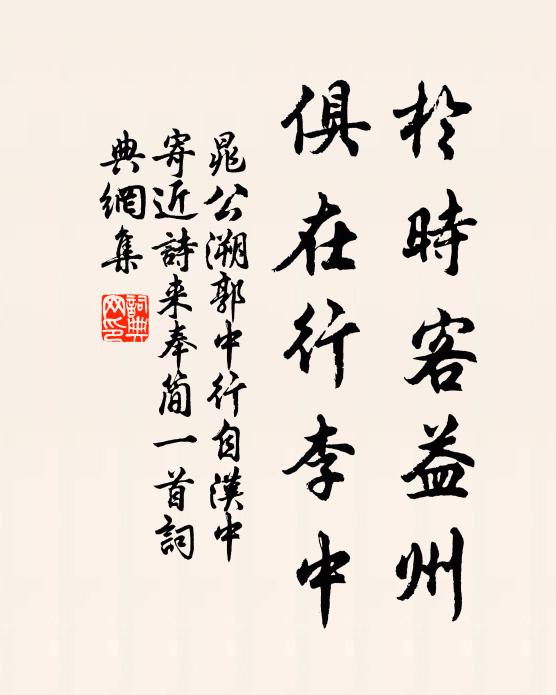 於時客益州
俱在行李中
晁公溯郭中行自漢中
寄近詩来奉简一首詞
典網集
詞典网印